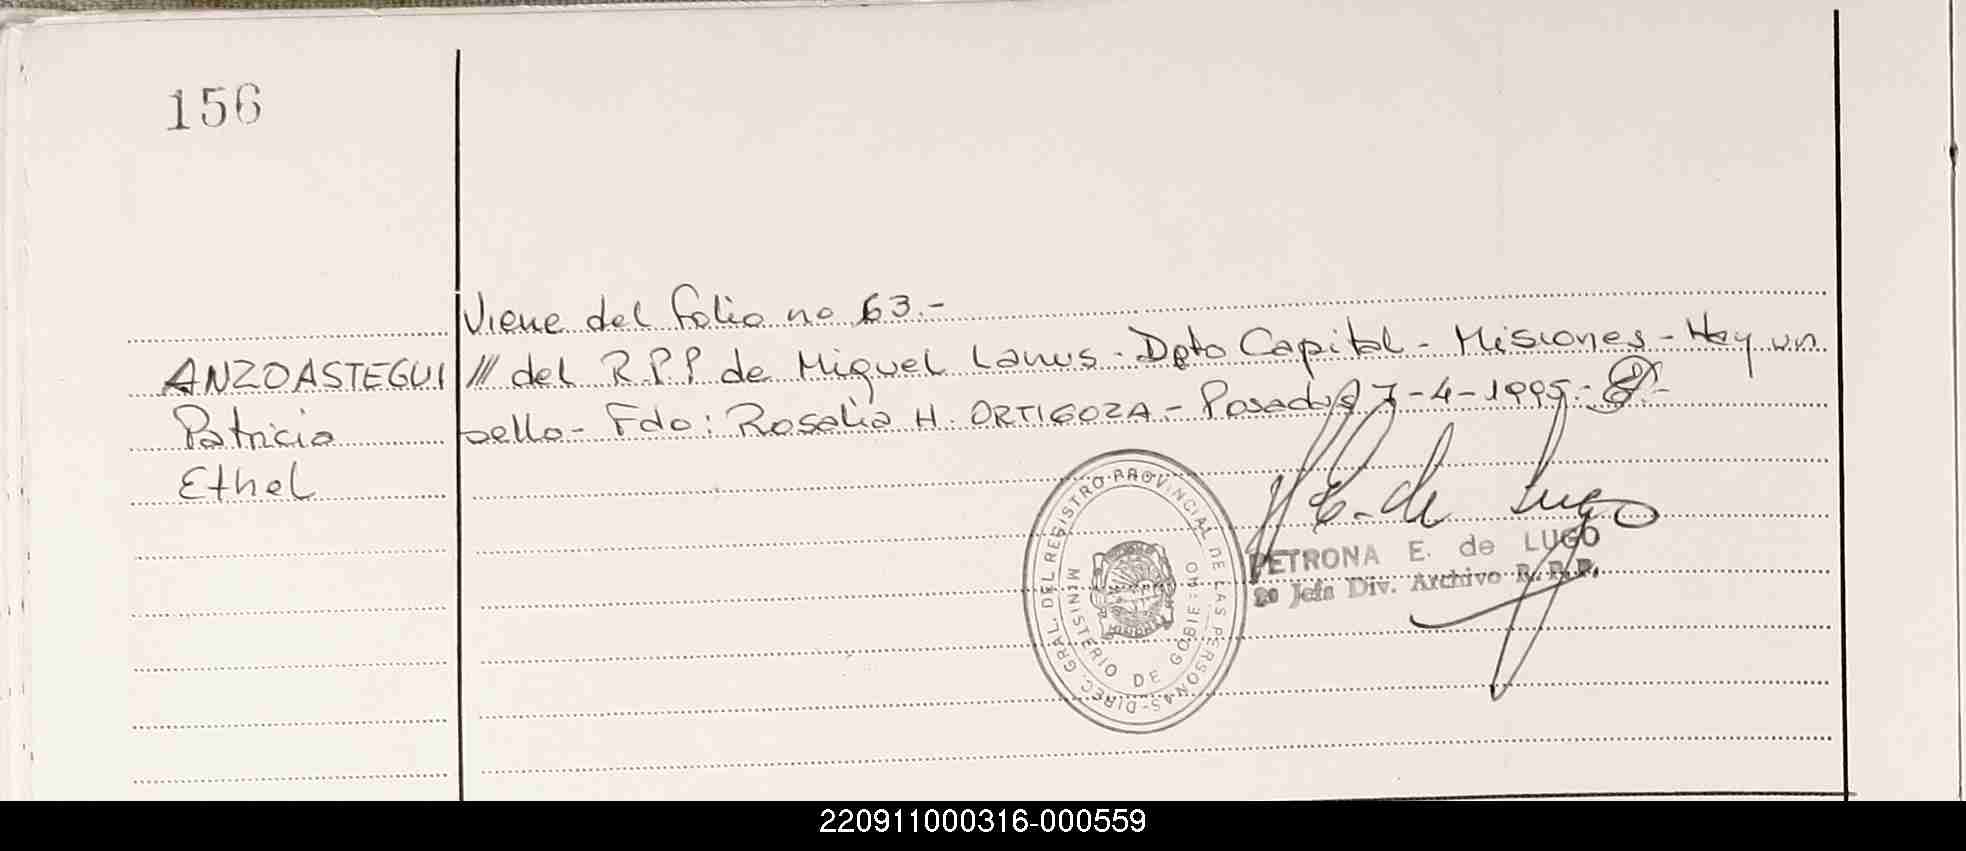 156
Viene del folio no 63.-
ANZOASTEGUI /// del R.P.P. de Miguel Lanus - Dpto Capital - Misiones - Hay un
Patricia sello - Fdo: Rosalia H. ORTIGOZA - Posadas 7-4-1995.-
Ethel
DIREC. GRAL. DEL REGISTRO PROVINCIAL DE LAS PERSONAS
MINISTERIO DE GOBIERNO
E. de Lugo
PETRONA E. de LUGO
2º Jefa Div. Archivo R.P.P.
220911000316-000559